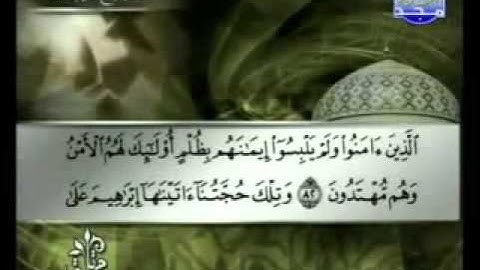 الَّذِينَ ءَامَنُوا وَلَمْ يَلْبِسُوا إِيمَـٰنَهُم بِظُلْمٍ أُولَـٰئِكَ لَهُمُ الْأَمْنُ
وَهُم مُّهْتَدُونَ ٨٢ وَتِلْكَ حُجَّتُنَا ءَاتَيْنَـٰهَا إِبْرَٰهِيمَ عَلَىٰ